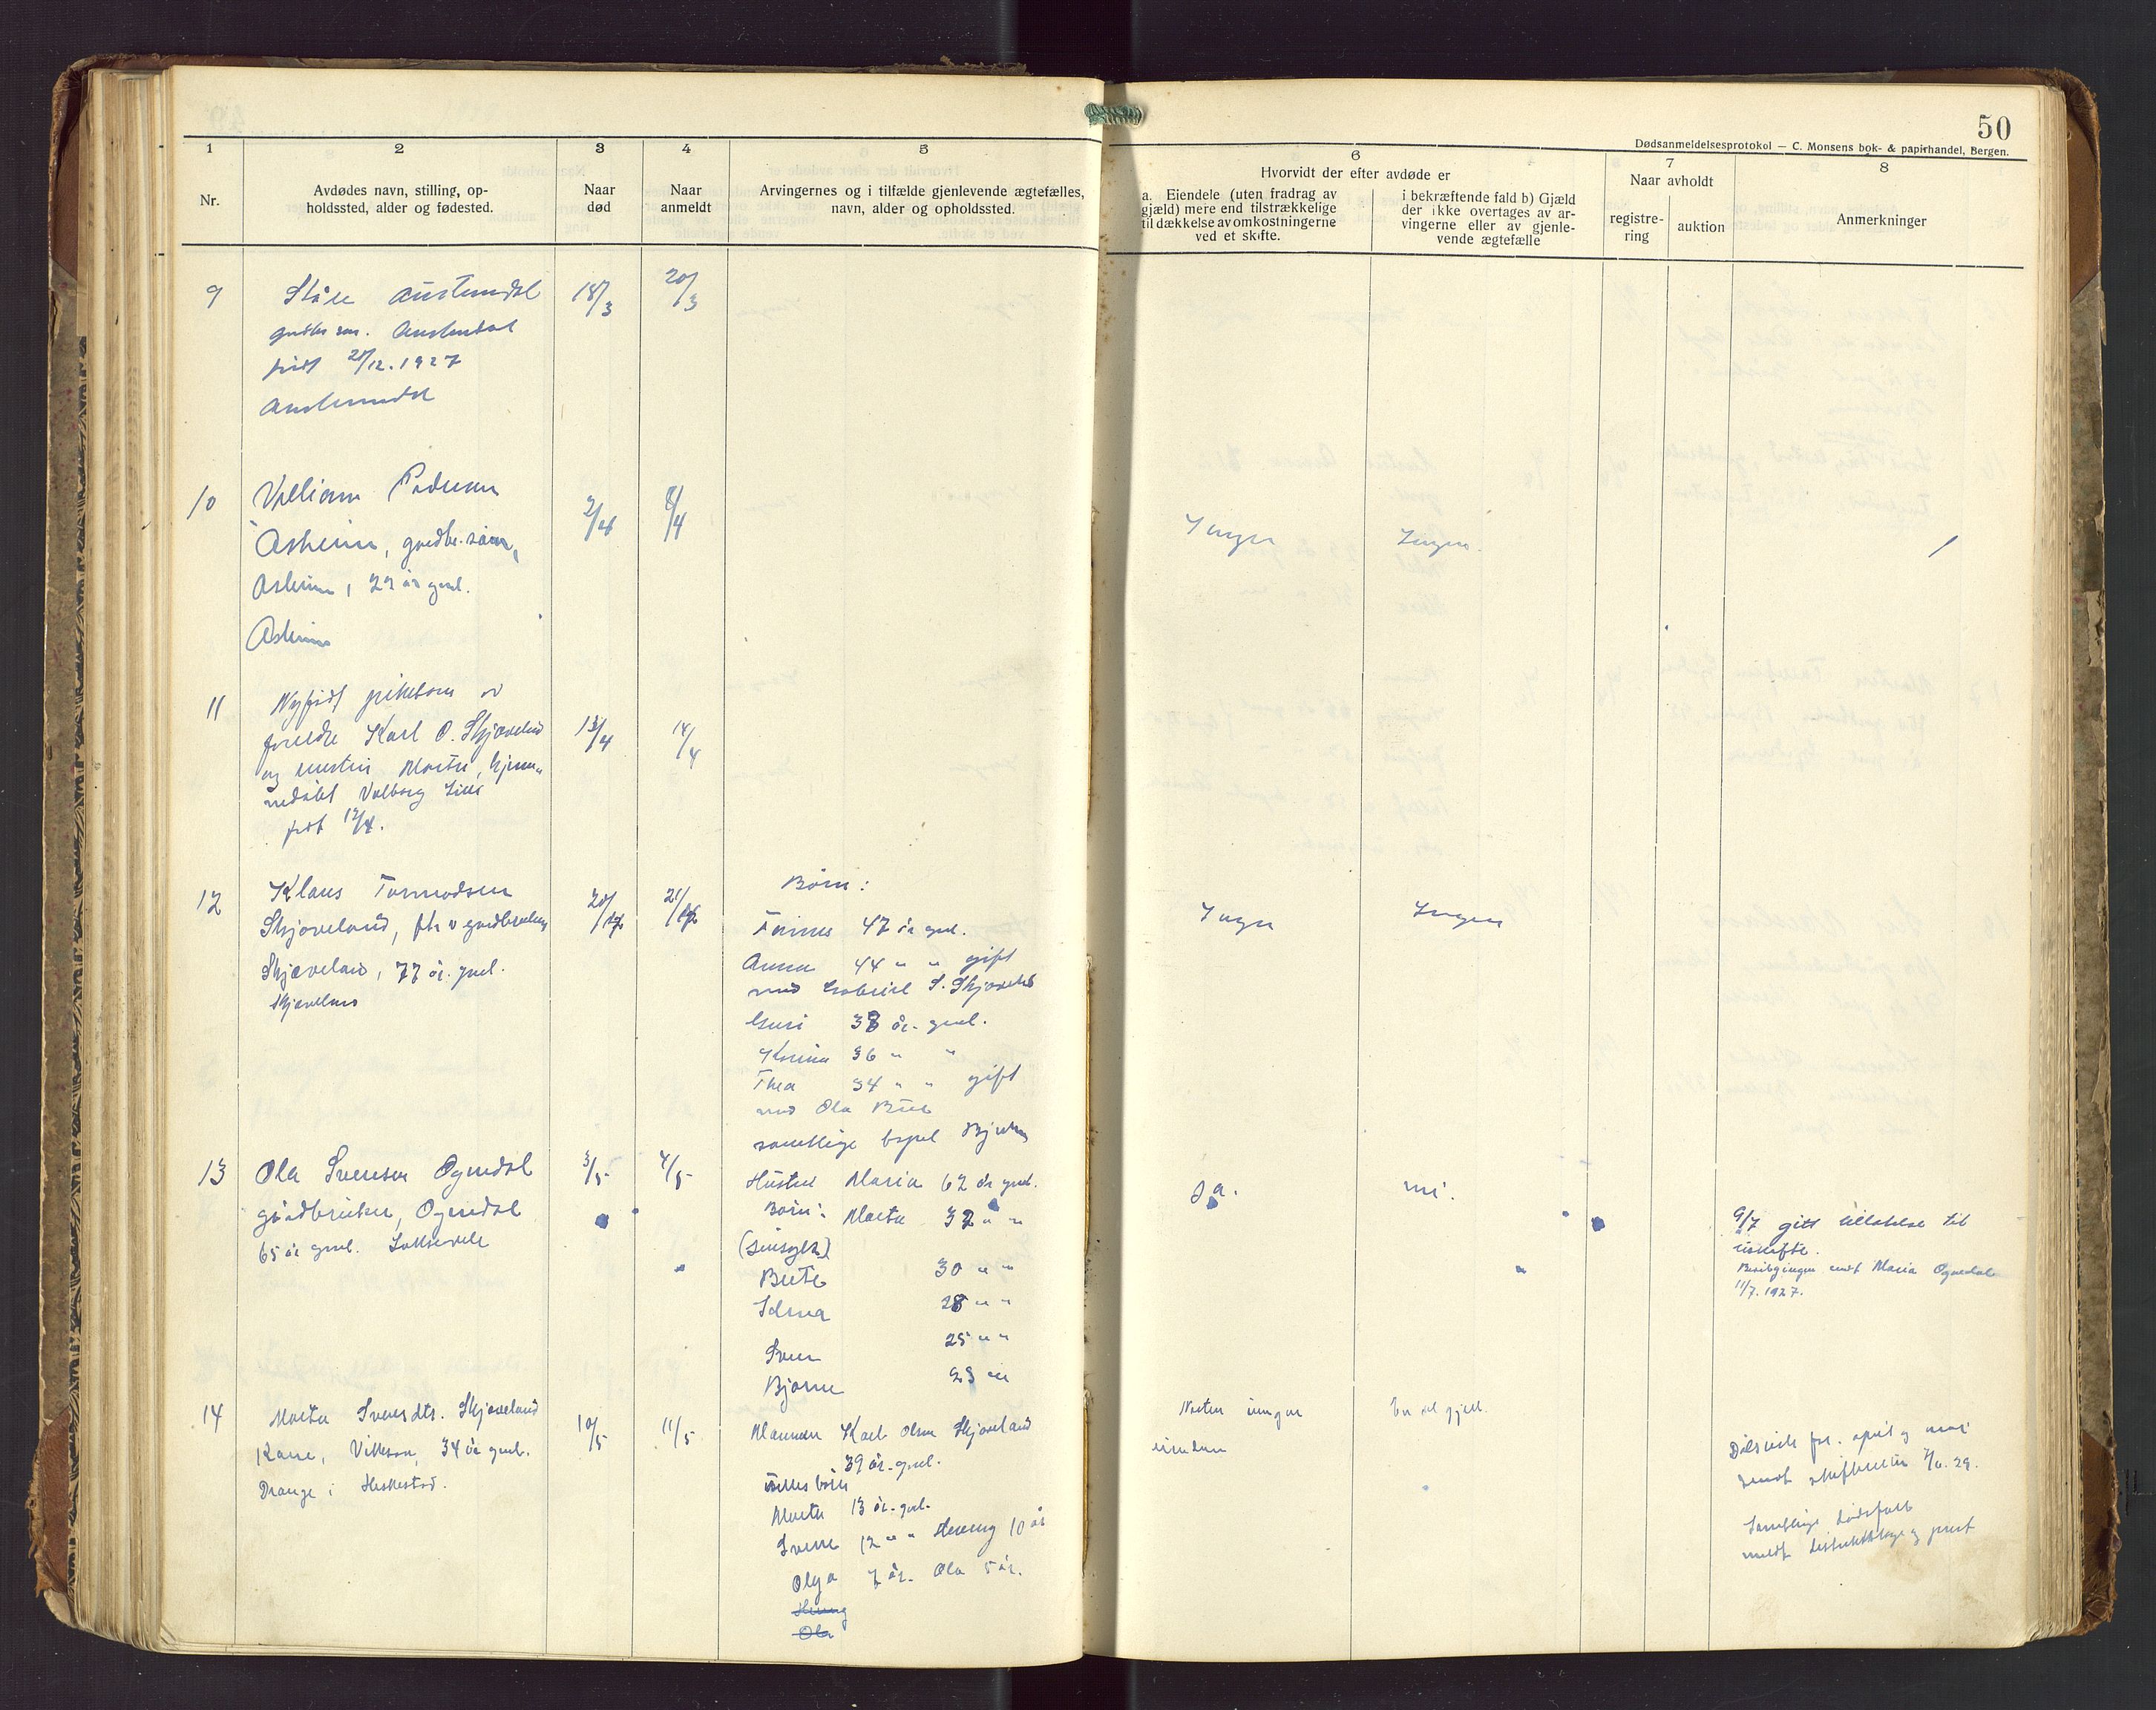 50
Dødsanmeldelsesprotokol — C. Monsens bok- & papirhandel, Bergen.
1 2 3 4 5 6 7 8
Nr.
Avdødes navn, stilling, op-
holdssted, alder og fødested.
Naar
død
Naar
anmeldt
Arvingernes og i tilfælde gjenlevende ægtefælles,
navn, alder og opholdssted.
Hvorvidt der efter avdøde er
a. Eiendele (uten fradrag av
gjæld) mere end tilstrækkelige
til dækkelse av omkostningerne
ved et skifte.
i bekræftende fald b) Gjæld
der ikke overtages av ar-
vingerne eller av gjenle-
vende ægtefælle
Naar avholdt
registre-
ring
auktion
Anmerkninger
9 Ståle Austumdal 18/3 20/3
Austumdal
født 28/12. 1927
Austumdal
10 William Pedersen
Asheim, gårdbr. søn, 2/4 8/4 Ingen Ingen
Asheim, 29 år gml.
Asheim
11 Nyfødt pikebarn av
foreldre Karl O. Skjæveland 13/4 14/4
og hustru Marta, hjemme
nedøbt Valborg
født 12/4.
12 Klaus Tormodsen 20/4 21/4 Børn:
Skjæveland, fhv gårdbruker Tønnes 47 år gml. Ingen Ingen
Skjæveland, 77 år. gml. Anna 44 " " gift
Skjæveland med Gabriel S. Skjæveland
Guri 38 år. gml.
36 " "
Thea 34 " " gift
med Ola
samtlige bopel
13 Ola Svensen Ognedal 3/5 4/5 Hustru Maria 62 år gml. Ja. nei.
gårdbruker, Ognedal Børn: Marta 32 " " 9/7 gitt tillatelse til
65 år gml. (sinsyk) uskifte.
Berte 30 " " Maria Ognedal
11/7. 1927.
28 " "
Sven 25 " "
Bjarne 23 " "
14 Marta Svensdtr. Skjæveland 10/5 11/5 Mannen Karl Olsen Skjæveland
Kone, 34 år gml. 39 år. gml.
Drange i Heskestad. Felles børn
Marta 13 år. gml.
Svenn 12 " " Henny 10 år
Olga 7 år. Ola 5 år.
Henny
Ola
april og mai
sendt
Samtlige dødsfall
meldt og prest